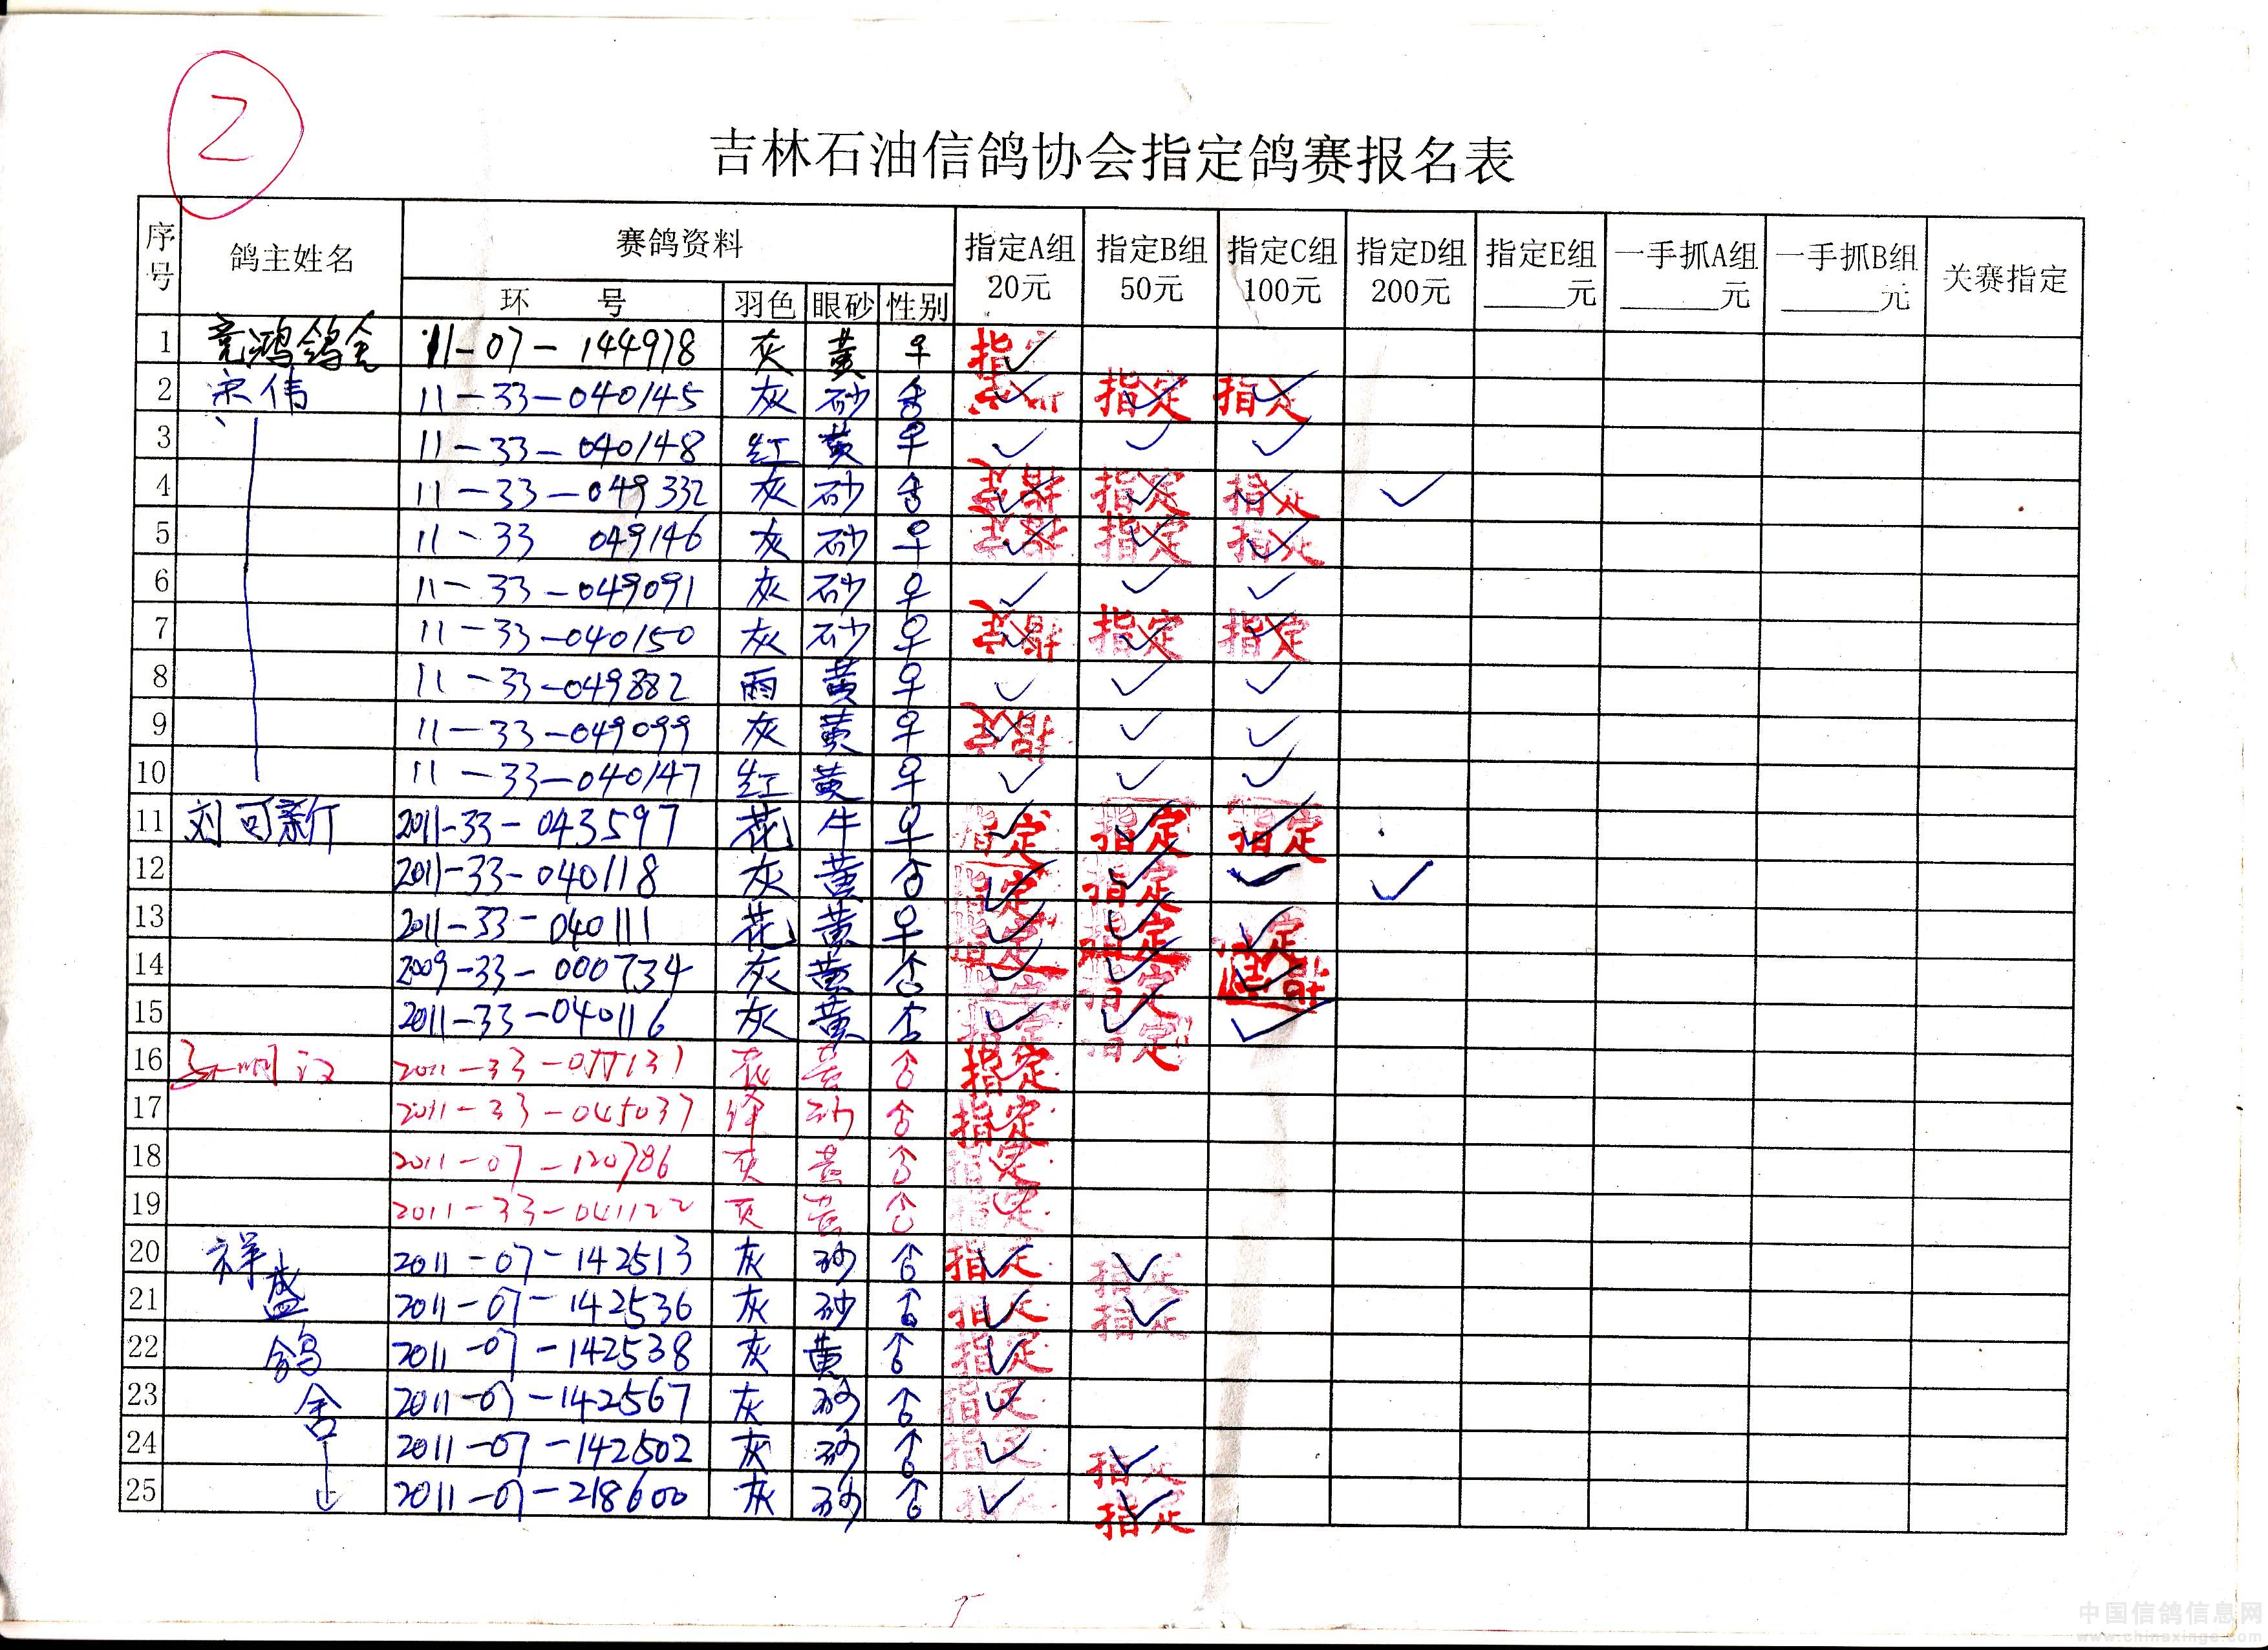 2
吉林石油信鸽协会指定鸽赛报名表
序号 鸽主姓名 赛鸽资料 指定A组 20元 指定B组 50元 指定C组 100元 指定D组 200元 指定E组 ____元 一手抓A组 ____元 一手抓B组 ____元 关赛指定
环 号 羽色 眼砂 性别
1 竞鸿鸽舍 11-07-144978 灰 黄 ♀ 指 ✓
2 宋伟 11-33-040145 灰 砂 ✓ 指定 ✓ 指定 ✓
3 11-33-040148 红 黄 ♀ ✓ ✓ ✓
4 11-33-049332 灰 砂 指定 ✓ 指定 ✓ 指定 ✓ ✓
5 11-33 049146 灰 砂 ♀ 指定 ✓ 指定 ✓ 指定 ✓
6 11-33-049091 灰 砂 ♀ ✓ ✓ ✓
7 11-33-040150 灰 砂 ♀ 指定 ✓ 指定 ✓ 指定 ✓
8 11-33-049882 雨 黄 ♀ ✓ ✓ ✓
9 11-33-049099 灰 黄 ♀ 指定 ✓ ✓ ✓
10 11-33-040147 红 黄 ♀ ✓ ✓ ✓
11 刘可新 2011-33-043597 花 牛 ♀ 指定 ✓ 指定 ✓ 指定 ✓
12 2011-33-040118 灰 黄 指定 ✓ 指定 ✓ ✓ ✓
13 2011-33-040111 花 黄 ♀ 指定 ✓ 指定 ✓ 指定 ✓
14 2009-33-000734 灰 黄 指定 ✓ 指定 ✓ 指定 ✓
15 2011-33-040116 灰 黄 指定 ✓ 指定 ✓ ✓
16 2011-33- 花 黄 指定
17 2011-33-045037 绛 砂 指定
18 2011-07-120786 灰 黄 指定
19 2011-33-041122 灰 黄 指定
20 祥 2011-07-142513 灰 砂 指定 ✓ 指定 ✓
21 盛 2011-07-142536 灰 砂 指定 ✓ 指定 ✓
22 鸽 2011-07-142538 灰 黄 指定 ✓
23 舍 2011-07-142567 灰 砂 指定 ✓
24 2011-07-142502 灰 砂 指定 ✓ 指定 ✓
25 2011-07-218600 灰 砂 指定 ✓ 指定 ✓
中国信鸽信息网
www.chinaxinge.com